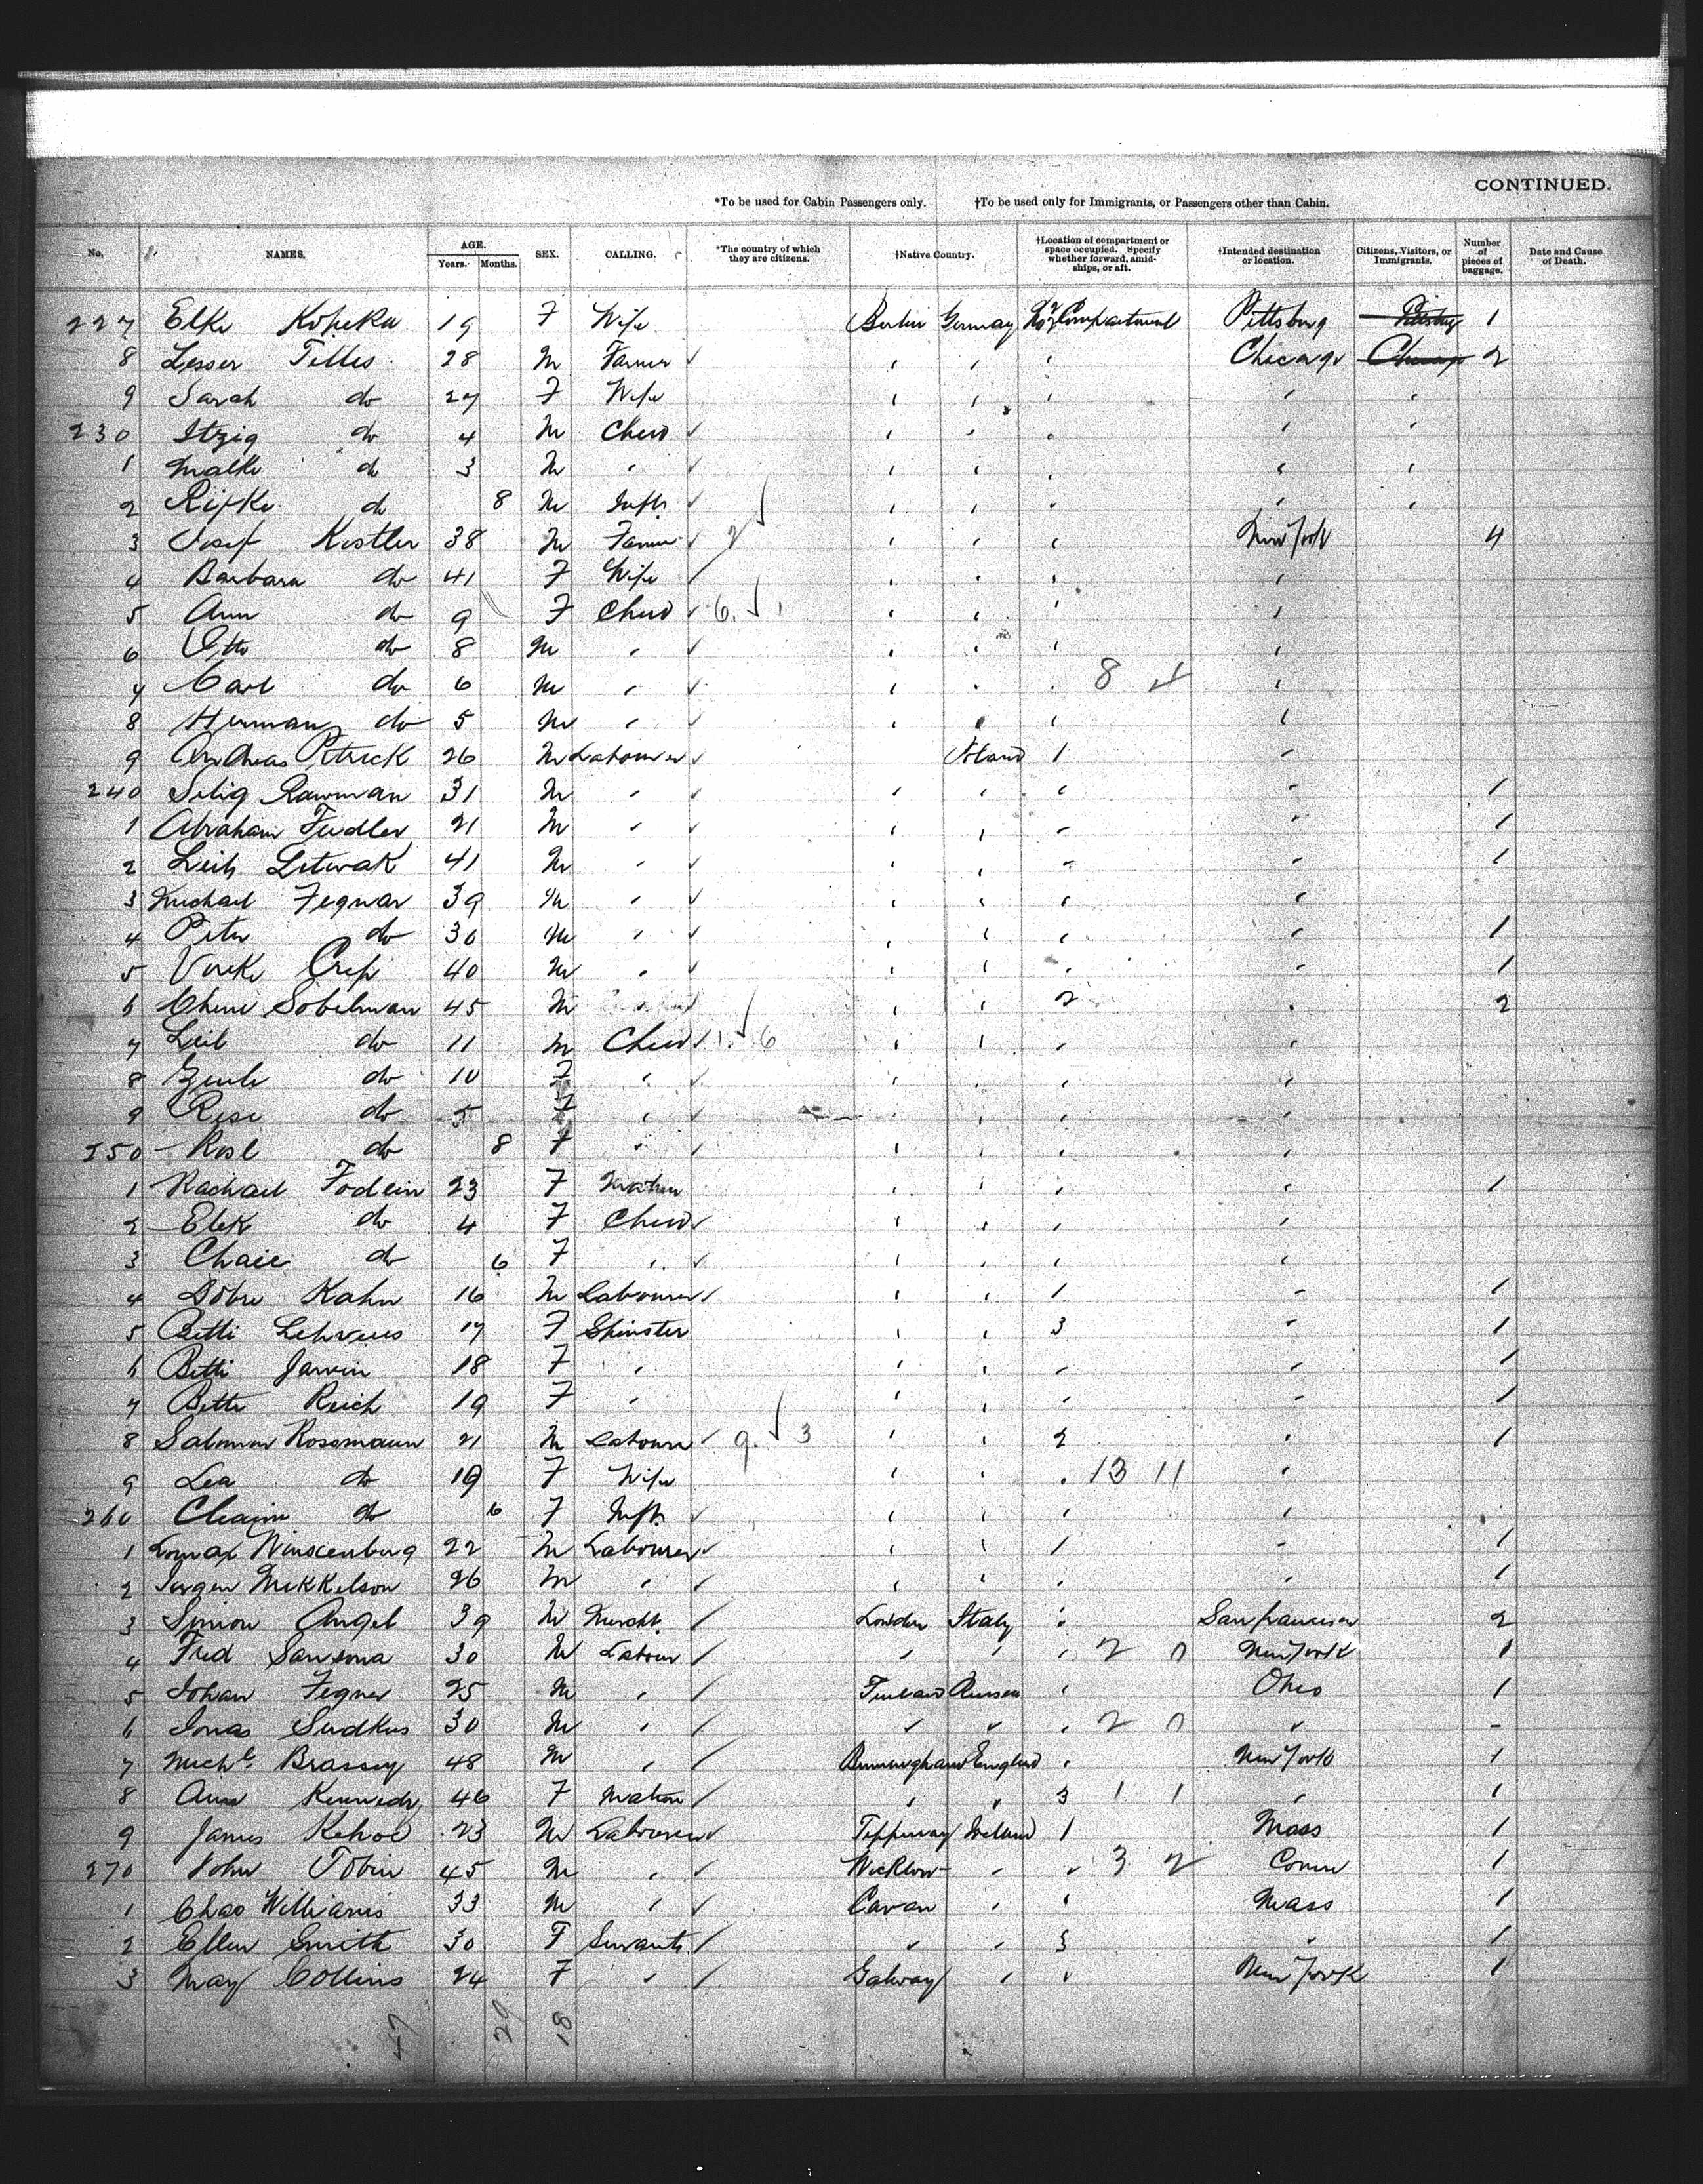 CONTINUED.
*To be used for Cabin Passengers only. †To be used only for Immigrants, or Passengers other than Cabin.
No. NAMES. AGE. Years. Months. SEX. CALLING. *The country of which they are citizens. †Native Country. †Location of compartment or space occupied. Specify whether forward, amidships, or aft. †Intended destination or location. Citizens, Visitors, or Immigrants. Number of pieces of baggage. Date and Cause of Death.
227 Elke Kopeka 19 F Wife Berlin Germany No 2 Compartment Pittsburg Pittsburg 1
8 Lesser Tilles 28 M Farmer Chicago Chicago 2
9 Sarah do 27 F Wife
230 Itzig do 4 M Child
1 Malke do 3 M
2 Rifke do 8 M Infts
3 Josef Kostler 38 M Farmer 2 New York 4
4 Barbara do 41 F Wife
5 Ann do 9 F Child 6. 1
6 Otto do 8 M
7 Carl do 6 M 8
8 Herman do 5 M
9 Andreas Petrick 26 M Labourer 1
240 Selig Rawman 31 M 1
1 Abraham Fudler 21 M 1
2 Leib Litwak 41 M 1
3 Michael Fegnar 39 M
4 Peter do 30 M 1
5 40 M 1
6 Sobelman 45 M 2 2
7 Leib do 11 M Child 1. 6
8 do 10 F
9 Rese do 5 F
250 Rosl do 8 F
1 Rachael Fodlein 23 F Matron 1
2 Elek do 4 F Child
3 Chaie do 6 F
4 Dobre Kahn 16 M Labourer 1 1
5 Betti 17 F Spinster 3 1
6 Betti Jarvin 18 F 1
7 Bette Reich 19 F 1
8 Salomon Rossmann 21 M Labourer 9. 3 2 1
9 Lea do 19 F Wife 13 11
260 Chaim do 6 F Infts
1 Winscenburg 22 M Labourer 1 1
2 Jorgen Mikkelson 26 M 1
3 Simon Angel 39 M Mercht. London Italy San francisco 2
4 Fred Sansona 30 M Labour 2 0 New York 1
5 Johan Fegner 25 M Finland Russia Ohio 1
6 Jonas Sudkus 30 M 2 0 -
7 Michl Brassey 48 M Birmingham England New York 1
8 Ann Kennedy 46 F Matron 3 1 1 1
9 James Kehoe 23 M Labourer Tipperary Ireland 1 Mass 1
270 John Tobin 45 M Wicklow 3 2 Conn 1
1 Chas Williams 33 M Cavan Mass 1
2 Ellen Smith 30 F Servants 3 1
3 May Collins 24 F Galway New York 1
47 29 18